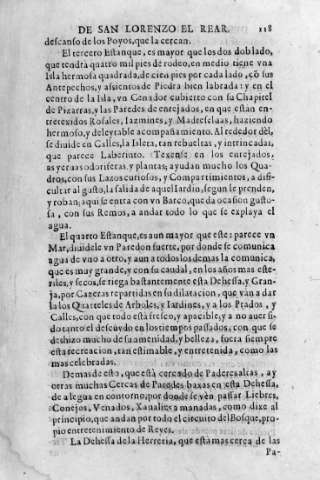 DE SAN LORENZO EL REAR. 118
descanso de los Poyos, que la cercan.
El tercero Estanque, es mayor que los dos doblado,
que tendrà quatro mil pies de rodeo, en medio tiene vna
Isla hermosa quadrada, de cien pies por cada lado, cõ sus
Antepechos, y assientos de Piedra bien labrada: y en el
centro de la Isla, vn Cenador cubierto con su Chapitel
de Pizarras, y las Paredes de enrejados, en que estan en-
tretexidos Rosales, Iazmines, y Madreselaas, haziendo
hermoso, y deleytable acompañamiento. Al rededor dèl,
se diuide en Calles, la Isleta, tan rebueltas, y intrincadas,
que parece Laberinto. Texense en los enrejados,
as yeruas odoriferas, y plantas; ayudan mucho los Qua-
dros, con sus Lazos curiosos, y Compartimientos, a difi-
cultar al gusto, la salida de aquel Iardio, segun se prenden,
y roban; aqui se entra con vn Barco, que da ocasion gusto-
sa, con sus Remos, a andar todo lo que se explaya el
agua.
El quarto Estanque, es aun mayor que este: parece vn
Mar, diuidele vn Paredon fuerte, por donde se comunica
agua de vno a otro, y aun a todos los demas la comunica,
que es muy grande, y con su caudal, en los años mas este-
riles, y secos, se riega bastantemente esta Dehessa, y Gran-
ja, por Cazeras repartidas en su dilatacion, que van a dar
a los Quarteles de Arboles, y Iardines, y a los Prados, y
Calles, con que todo està fresco, y apacible, y a no auer si-
do tanto el descuydo en los tiempos passados, con que se
deshizo mucho de su amenidad, y belleza, fuera siempre
esta recreacion, tan estimable, y entretenida, como las
mas celebradas.
Demas de esto, que està cercado de Paderes altas, ay
otras muchas Cercas de Paredes baxas en esta Dehessa,
de a legua en contorno, por donde se vèn passar Liebres,
Conejos, Venados, Xaualies a manadas, como dixe al
principio, que andan por todo el circuito del Bosque, pro-
pio entretenimiento de Reyes.
La Dehessa de la Herreria, que està mas cerca de las
Pa-